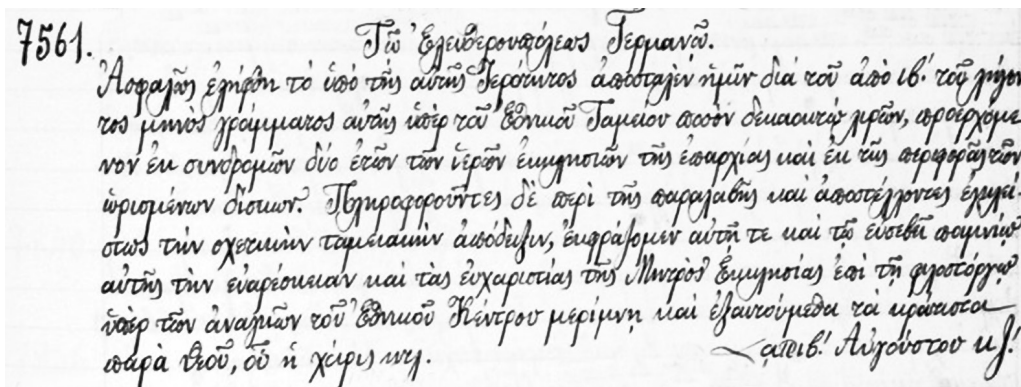 7561. Τῷ Ἐλευθερουπόλεως Γερμανῷ.
Ἀσφαλῶς ἐλήφθη τὸ ὑπὸ τῆς αὐτῆς Ἱερότητος ἀποσταλὲν ἡμῖν διὰ τοῦ ἀπὸ ιβ΄ τοῦ λήγον
τος μηνὸς γράμματος αὐτῆς ὑπὲρ τοῦ Ἐθνικοῦ Ταμείου ποσὸν δεκαοκτὼ λιρῶν, προερχόμε
νον ἐκ συνδρομῶν δύο ἐτῶν τῶν ἱερῶν ἐκκλησιῶν τῆς ἐπαρχίας καὶ ἐκ τῆς περιφορᾶς τῶν
ὡρισμένων δίσκων. Πληροφοροῦντες δὲ περὶ τῆς παραλαβῆς καὶ ἀποστέλλοντες ἐγκλεί-
στως τὴν σχετικὴν ταμειακὴν ἀπόδειξιν, ἐκφράζομεν αὐτῇ τε καὶ τῷ εὐσεβεῖ ποιμνίῳ
αὐτῆς τὴν εὐαρέσκειαν καὶ τὰς εὐχαριστίας τῆς Μητρὸς Ἐκκλησίας ἐπὶ τῇ φιλοστόργῳ
ὑπὲρ τῶν ἀναγκῶν τοῦ Ἐθνικοῦ Κέντρου μερίμνῃ καὶ ἐξαιτούμεθα τὰ κράτιστα
παρὰ Θεοῦ, οὗ ἡ χάρις κτλ. Αὐγούστου κζ΄